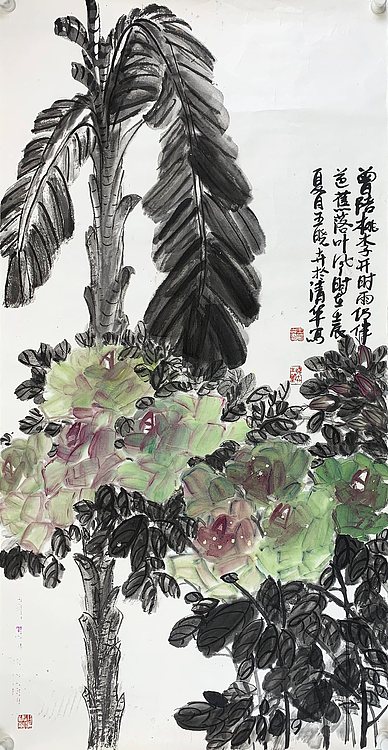 曾陪桃李开时雨仍伴
芭蕉落叶风时在壬辰
夏月于清华写